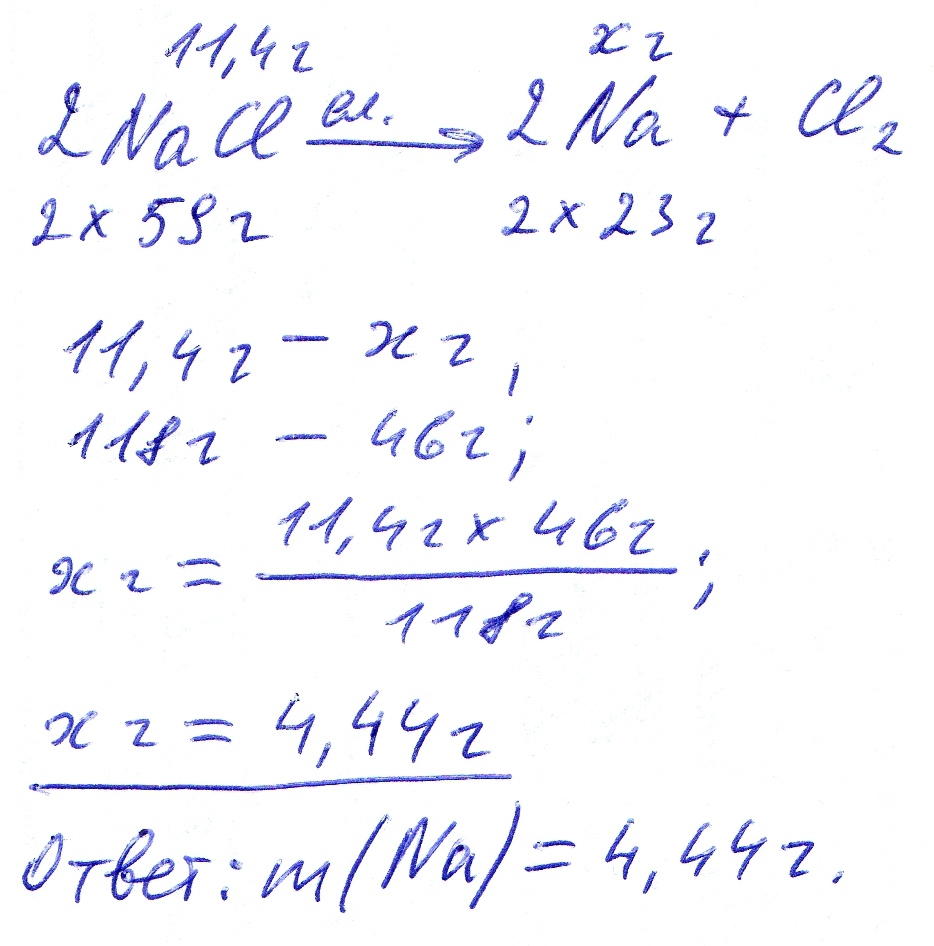 11,4г xг
2NaCl эл.→ 2Na + Cl₂
2×59г 2×23г
11,4г – xг,
118г – 46г;
xг = 11,4г × 46г / 118г ;
xг = 4,44г
Ответ: m(Na) = 4,44г.